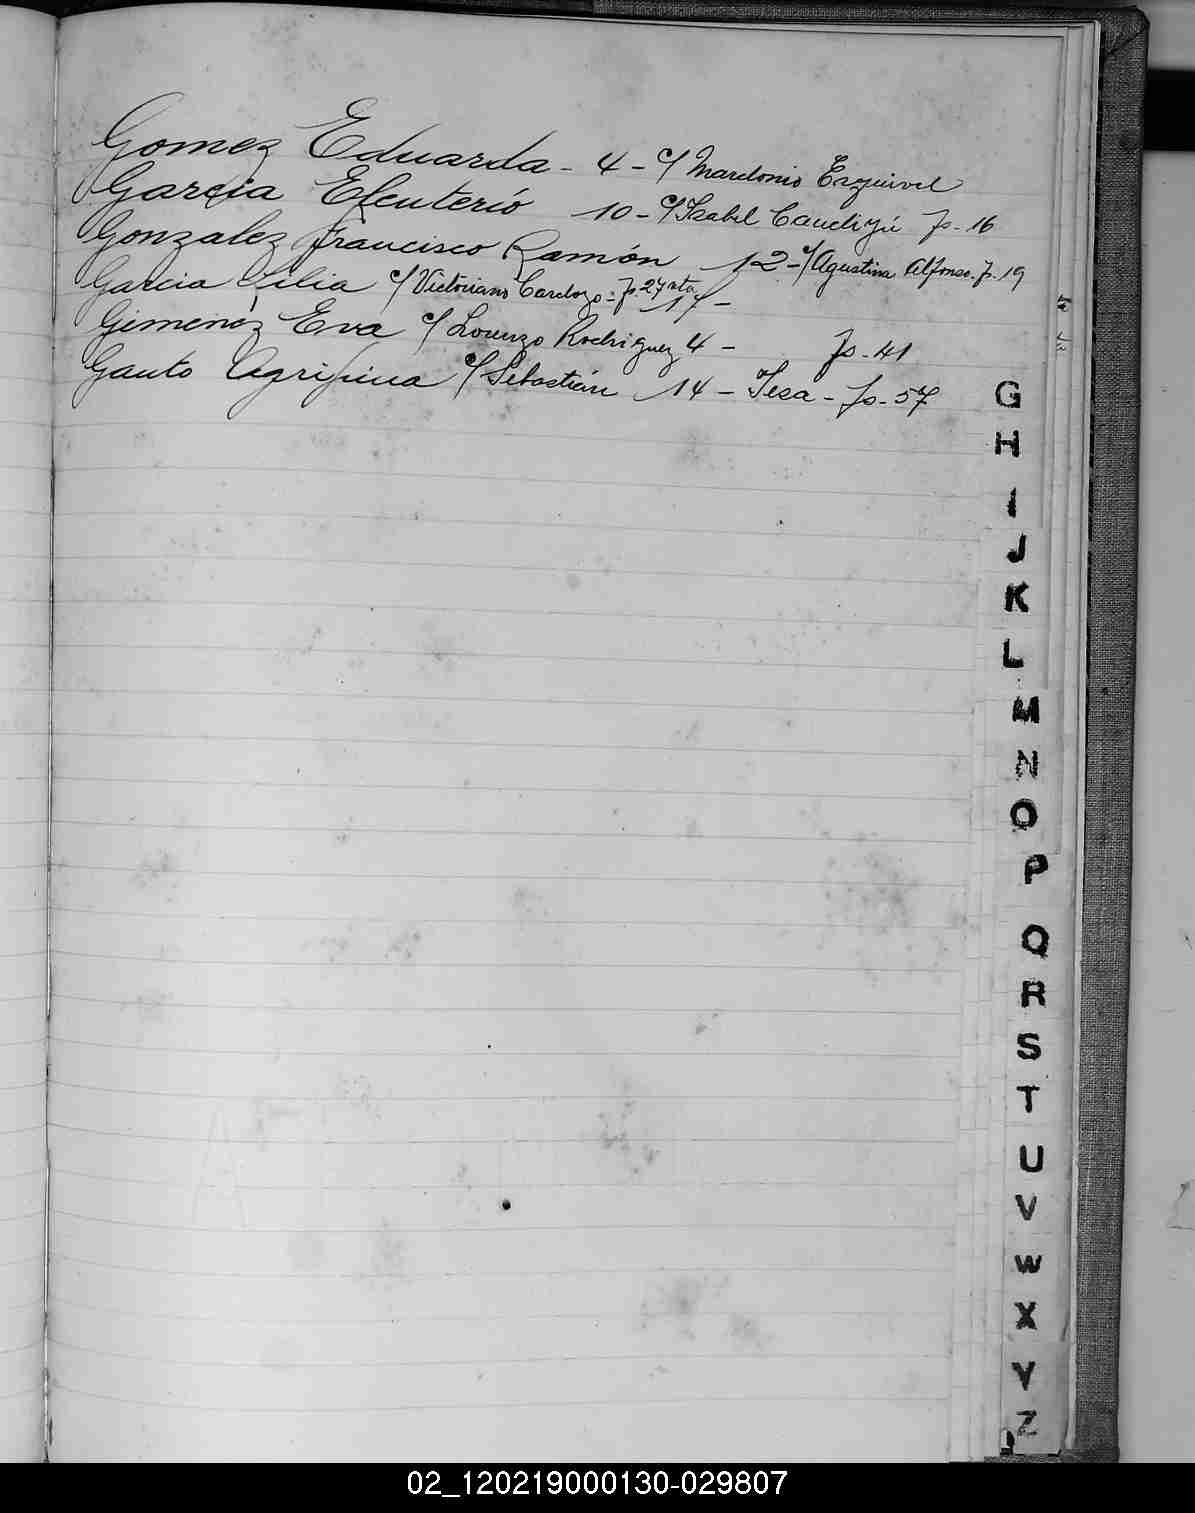 Gomez Eduarda - 4 - c/ Mardonio Ezquivel
Garcia Eleuterio 10 - c/ Isabel Candiyú fs - 16
Gonzalez Francisco Ramón 12 - c/ Agustina Alfonso. fs. 19
Garcia Lilia c/ Victoriano Cardozo - fs. 27 vta 17 -
Gimenez Eva c/ Lorenzo Rodriguez 4 - fs - 41
Gauto Agripina c/ Sebastián 14 - Tesa - fs - 57
G
H
I
J
K
L
M
N
O
P
Q
R
S
T
U
V
W
X
Y
Z
02_120219000130-029807